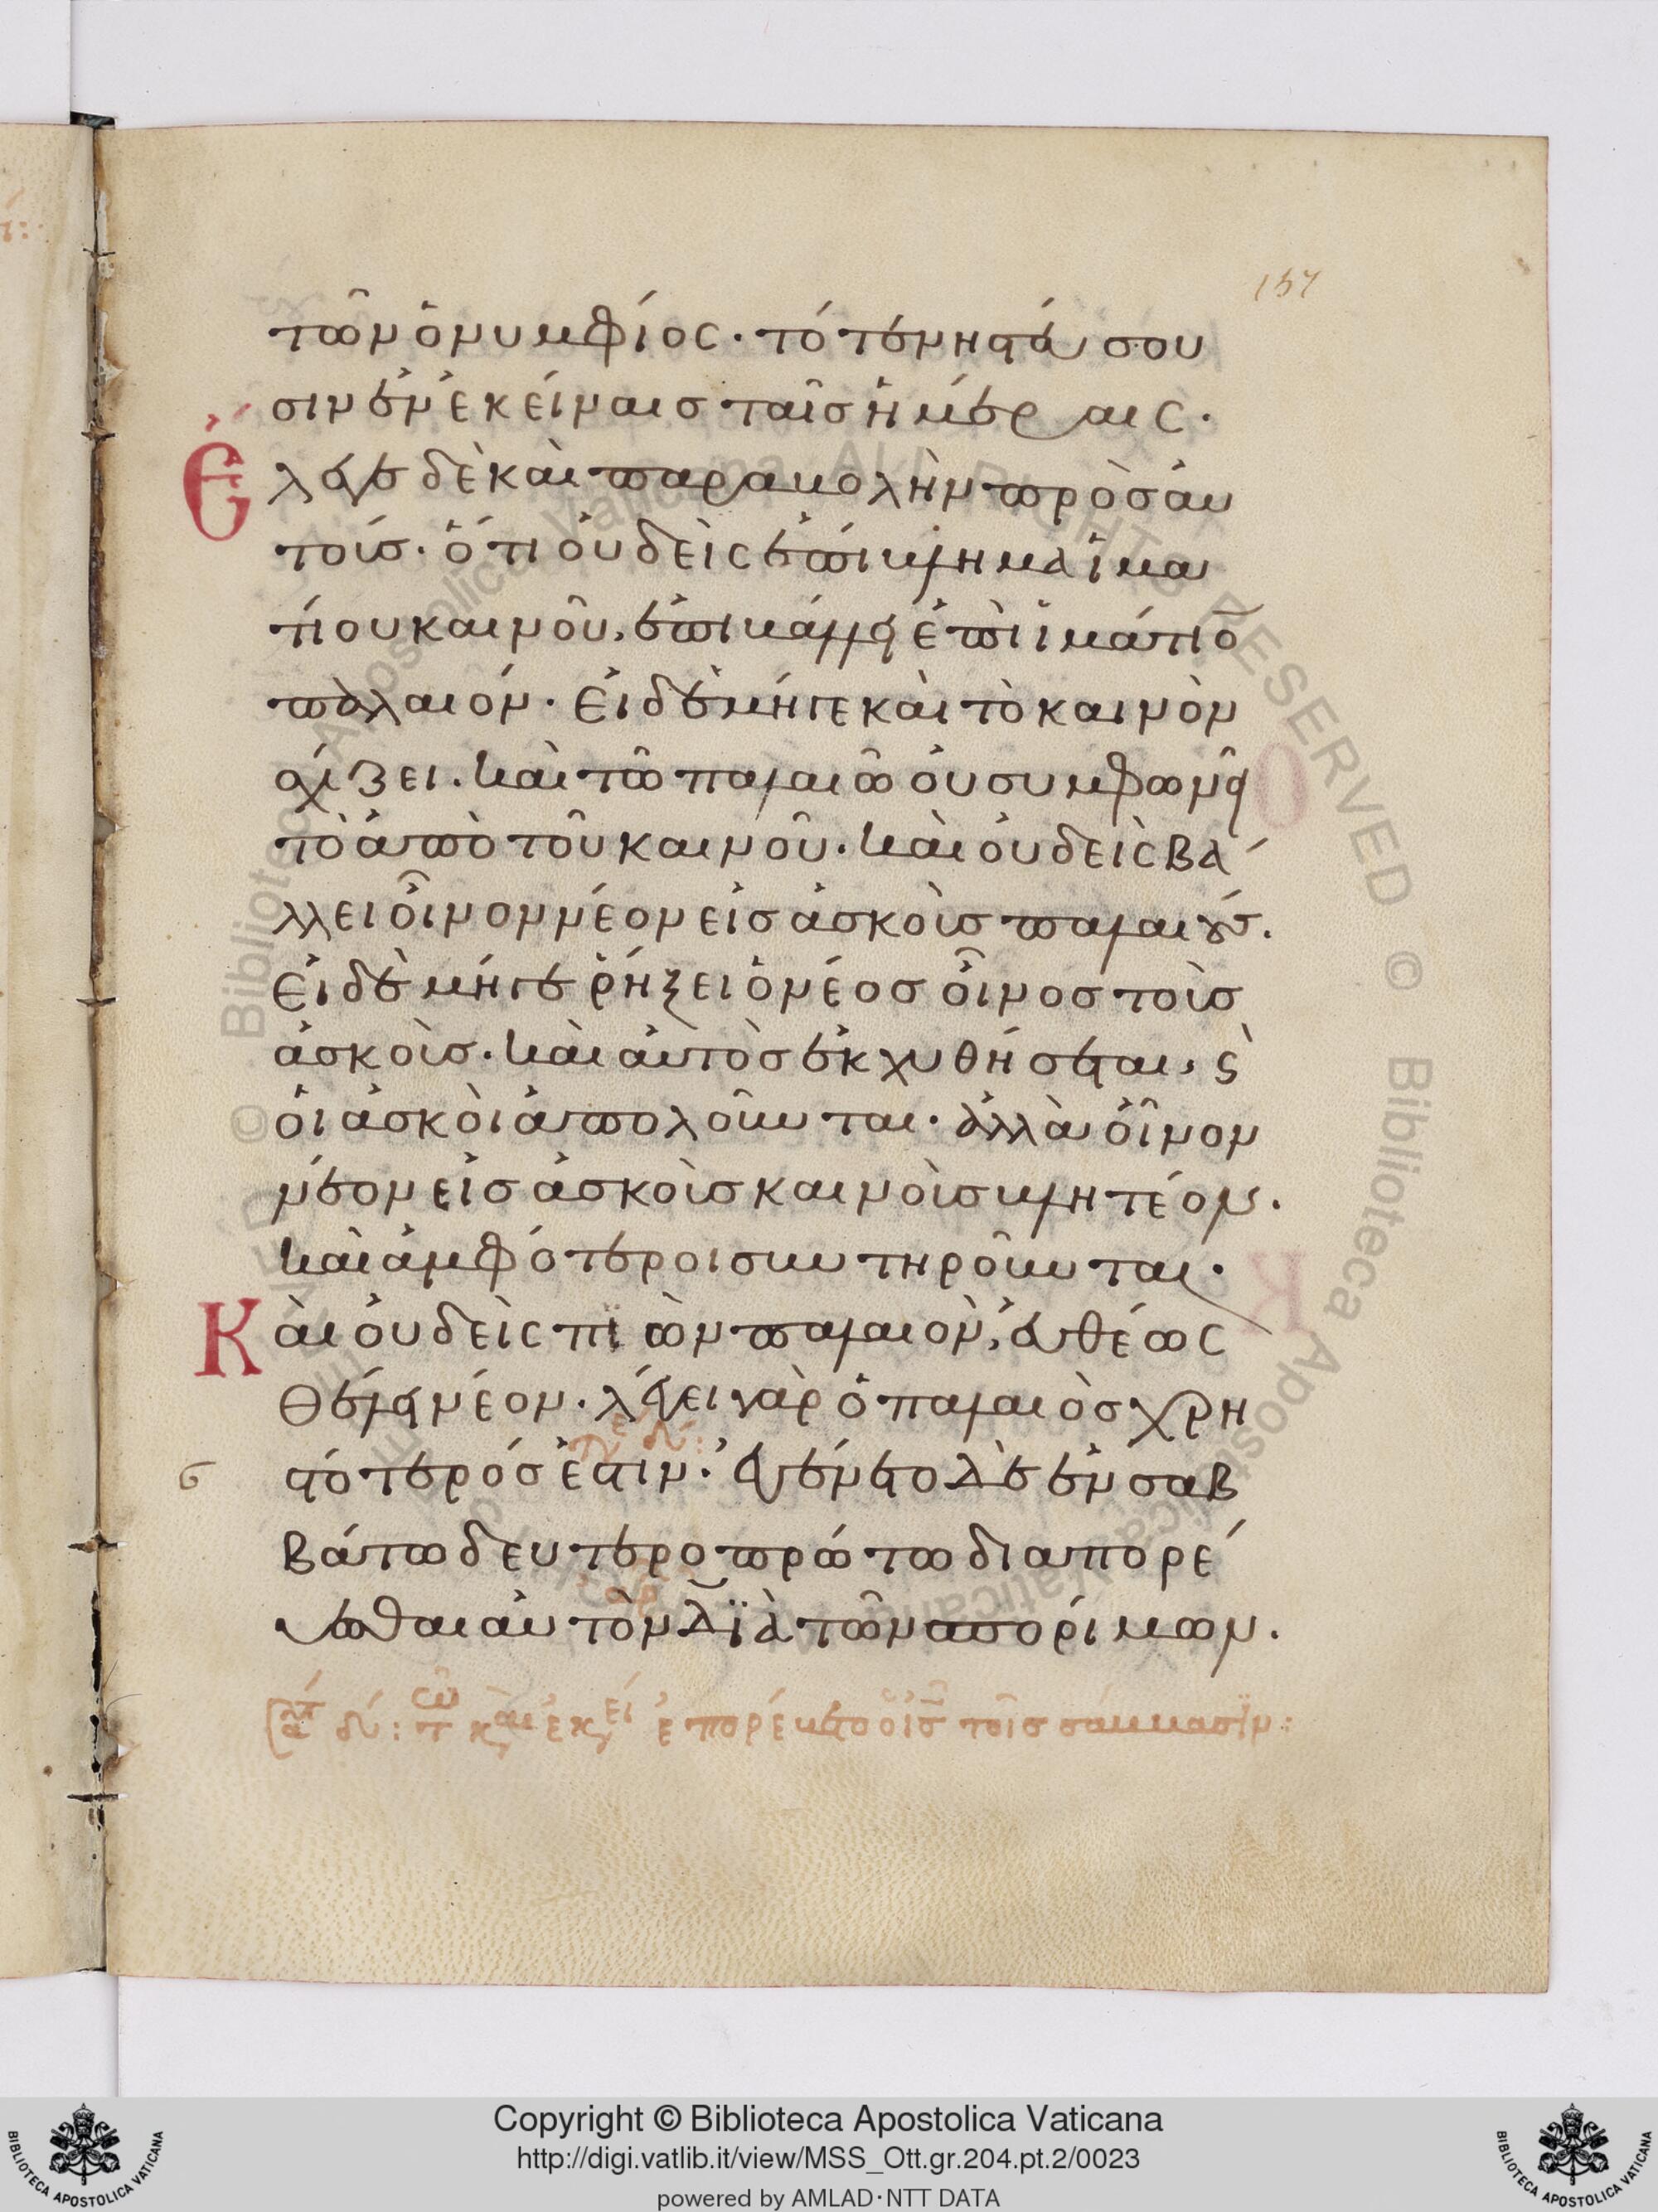 157
τῶν ὁ νυμφίος· τότε νηστεύσου
σιν ἐν ἐκείναις ταῖς ἡμέραις.
Ἔλεγε δὲ καὶ παραβολὴν πρὸς αὐ
τούς· ὅτι οὐδεὶς ἐπίβλημα ἱμα
τίου καινοῦ, ἐπιβάλλει ἐπὶ ἱμάτιο̅
παλαιόν· Εἰ δὲ μήγε καὶ τὸ καινὸν
σχίζει. καὶ τῶ παλαιῶ οὐ συμφωνεῖ
τὸ ἀπὸ τοῦ καινοῦ. καὶ οὐδεὶς βά
λλει οἶνον νέον εἰς ἀσκοὺς παλαιούς.
Εἰ δὲ μήγε ῥήξει ὁ νέος οἶνος τοὺς
ἀσκοὺς. καὶ αὐτὸς ἐκχυθήσεται, ϛ̀
οἱ ἀσκοὶ ἀπολοῦνται. ἀλλὰ οἶνον
νέον εἰς ἀσκοὺς καινοὺς βλητέον.
καὶ ἀμφότεροι συντηροῦνται.
Καὶ οὐδεὶς πϊὼν παλαιὸν, εὐθέως
θέλει νέον. λέγει γὰρ ὁ παλαιὸς χρη
στότερός ἐστιν. Ἐγένετο δὲ ἐν σαβ
βάτω δευτεροπρώτω διαπορεύ
εσθαι αὐτὸν δϊὰ τῶν σπορίμων.
ἐπορεύετο ὁ ἰς̅ τοῖς σάββασϊν:
Copyright © Biblioteca Apostolica Vaticana
http://digi.vatlib.it/view/MSS_Ott.gr.204.pt.2/0023
powered by AMLAD·NTT DATA
BIBLIOTECA APOSTOLICA VATICANA
BIBLIOTECA APOSTOLICA VATICANA